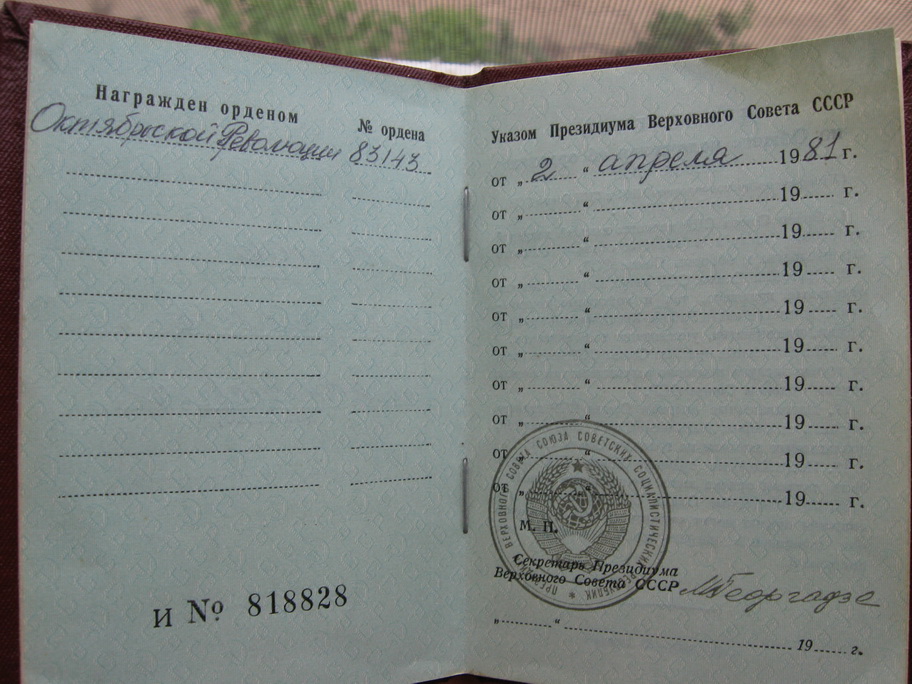 Награжден орденом
№ ордена
Октябрьской Революции 83143
И № 818828
Указом Президиума Верховного Совета СССР
от „ 2 “ апреля 1981 г.
от „ “ 19 г.
от „ “ 19 г.
от „ “ 19 г.
от „ “ 19 г.
от „ “ 19 г.
от „ “ 19 г.
от „ “ 19 г.
от „ “ 19 г.
от „ “ 19 г.
ПРЕЗИДИУМ ВЕРХОВНОГО СОВЕТА СОЮЗА СОВЕТСКИХ СОЦИАЛИСТИЧЕСКИХ РЕСПУБЛИК
М. П.
Секретарь Президиума
Верховного Совета СССР МГеоргадзе
„ “ 19 г.